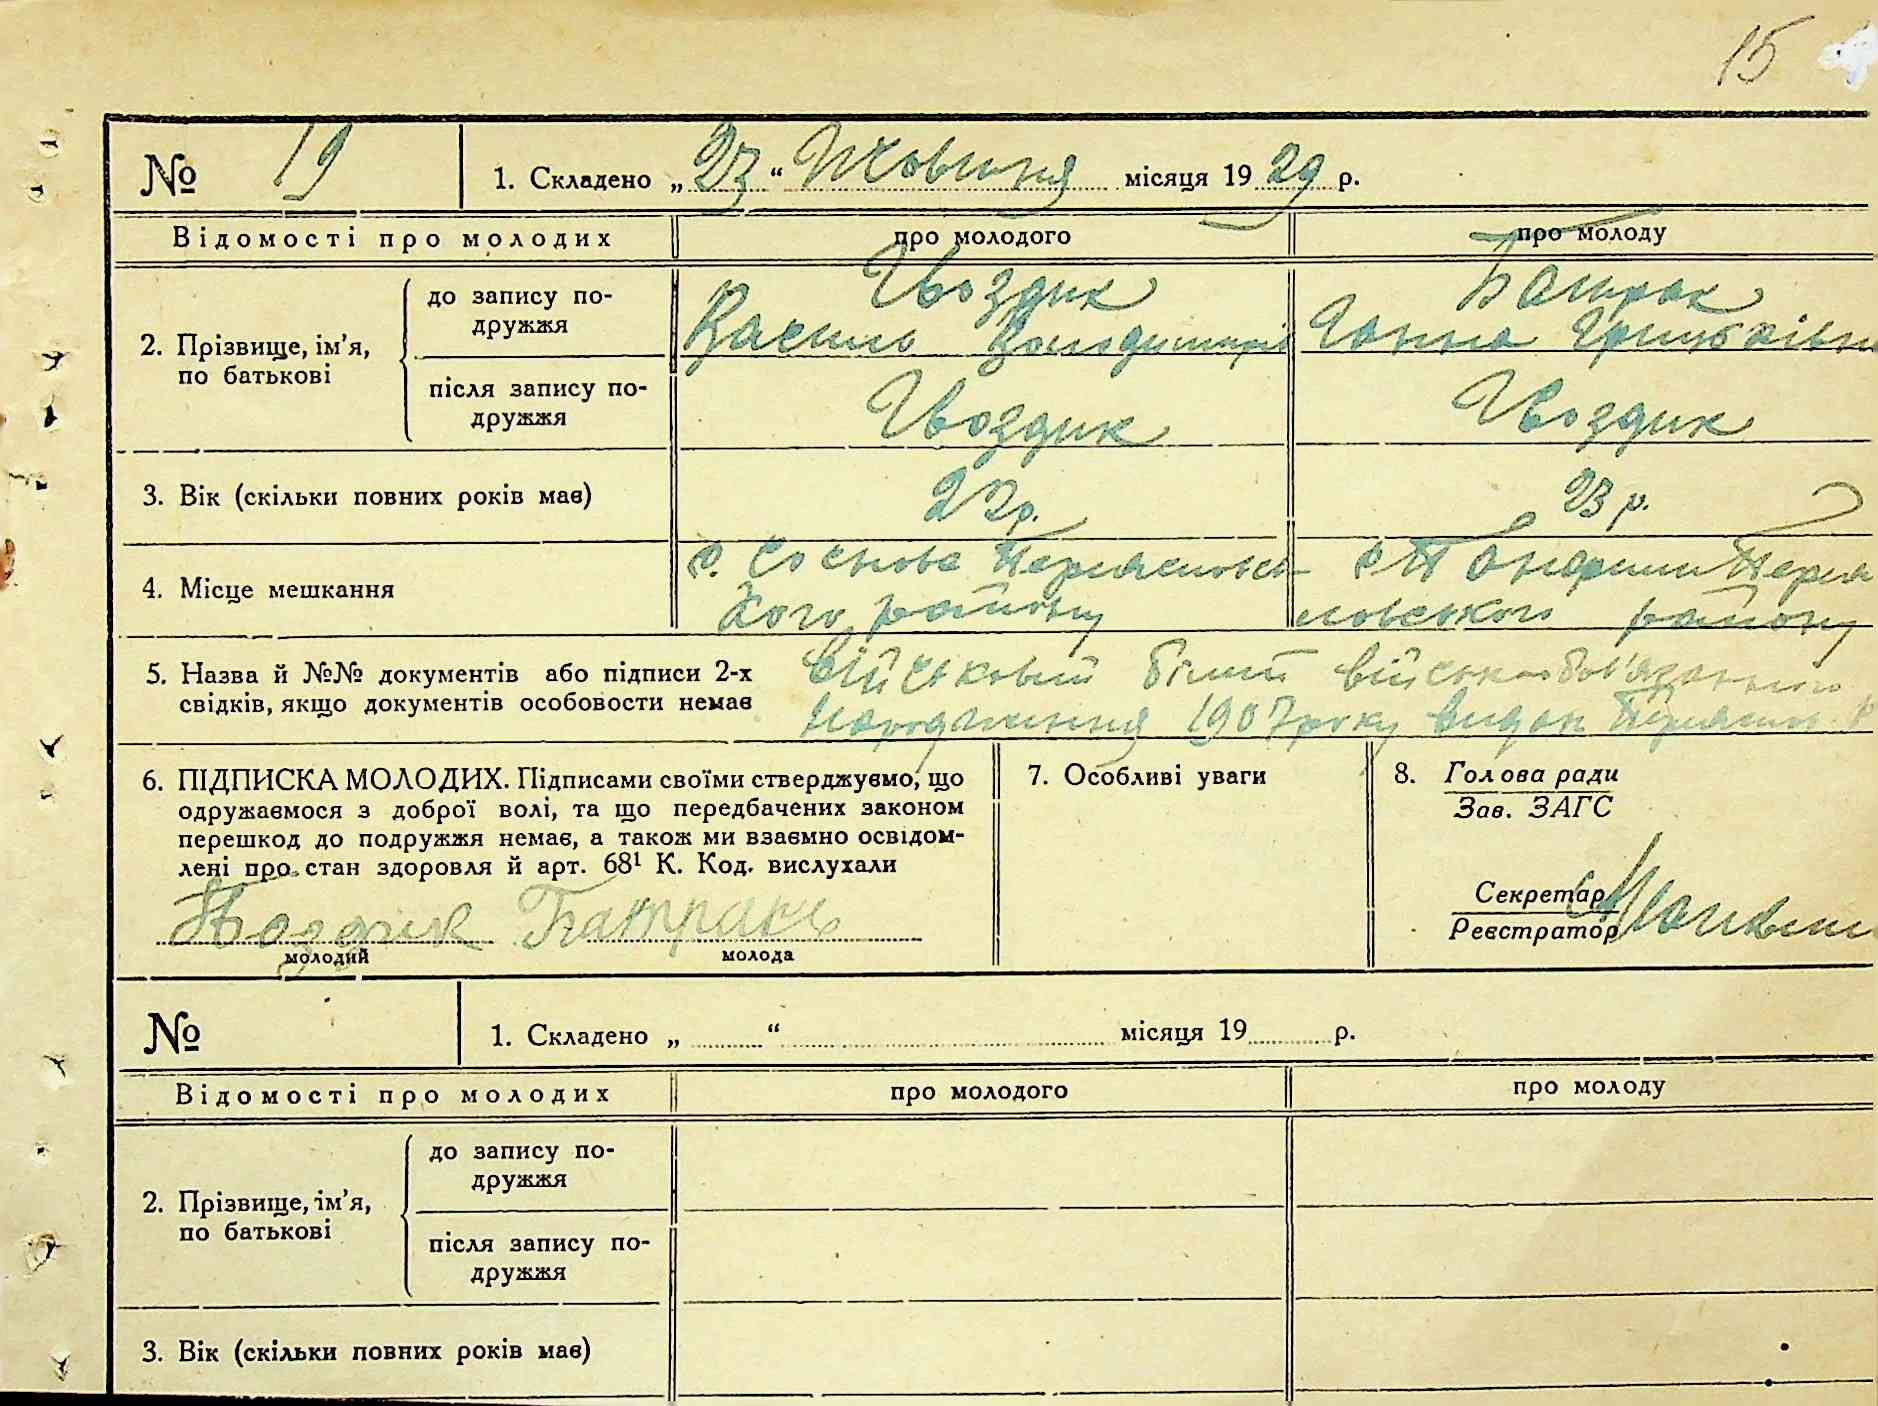 15
№ 19
1. Складено „23“ Жовтня місяця 1929 р.
Відомості про молодих
про молодого
про молоду
2. Прізвище, ім’я,
по батькові
до запису по-
дружжя
Гвоздик
Василь Володимирів
Батрак
Ганна Грицьківн
після запису по-
дружжя
Гвоздик
Гвоздик
3. Вік (скільки повних років має)
22 р.
23 р.
4. Місце мешкання
с. Соснове Переяславсь-
кого району
с. Переяс
лавського району
5. Назва й №№ документів або підписи 2-х
свідків, якщо документів особовости немає
Військовий білет військовобов'язаного
народження 1907 року видан
6. ПІДПИСКА МОЛОДИХ. Підписами своїми стверджуємо, що
одружаємося з доброї волі, та що передбачених законом
перешкод до подружжя немає, а також ми взаємно освідом-
лені про стан здоровля й арт. 68¹ К. Код. вислухали
Гвоздик Батракъ
молодий
молода
7. Особливі уваги
8. Голова ради
Зав. ЗАГС
Секретар
Реєстратор
№
1. Складено „ “ місяця 19 р.
Відомості про молодих
про молодого
про молоду
2. Прізвище, ім’я,
по батькові
до запису по-
дружжя
після запису по-
дружжя
3. Вік (скільки повних років має)